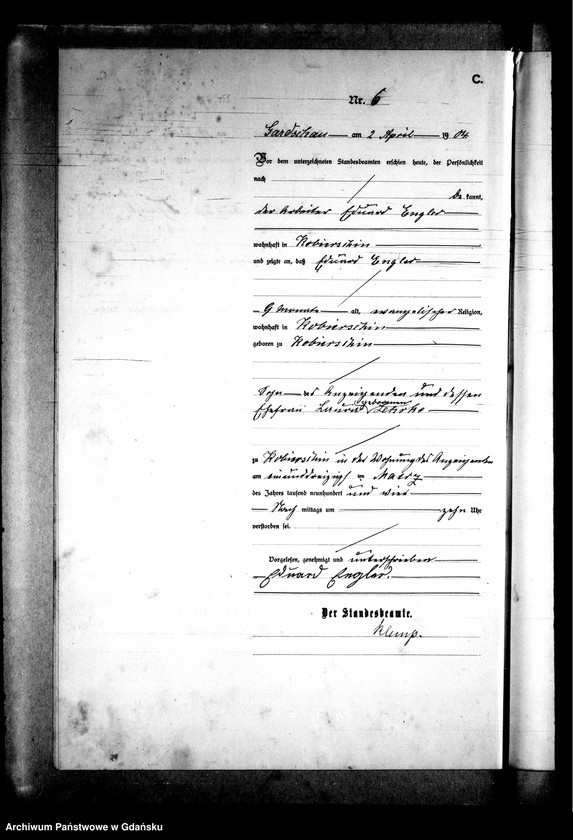 C.
Nr. 6
Gardschau am 2 April 1904
Vor dem unterzeichneten Standesbeamten erschien heute, der Persönlichkeit
nach
be kannt,
der Arbeiter Eduard Engler
wohnhaft in Kobierschin
und zeigte an, daß Eduard Engler
9 Monate alt, evangelischer Religion,
wohnhaft in Kobierschin
geboren zu Kobierschin
Sohn des Anzeigenden und dessen
Ehefrau Laura geborenen
zu Kobierschin in der Wohnung des Anzeigenden
am einunddreizigst en Maerz
des Jahres tausend neunhundert und vier
Nach mittags um zehn Uhr
verstorben sei.
Vorgelesen, genehmigt und unterschrieben
Eduard Engler.
Der Standesbeamte.
Klemp.
Archiwum Państwowe w Gdańsku